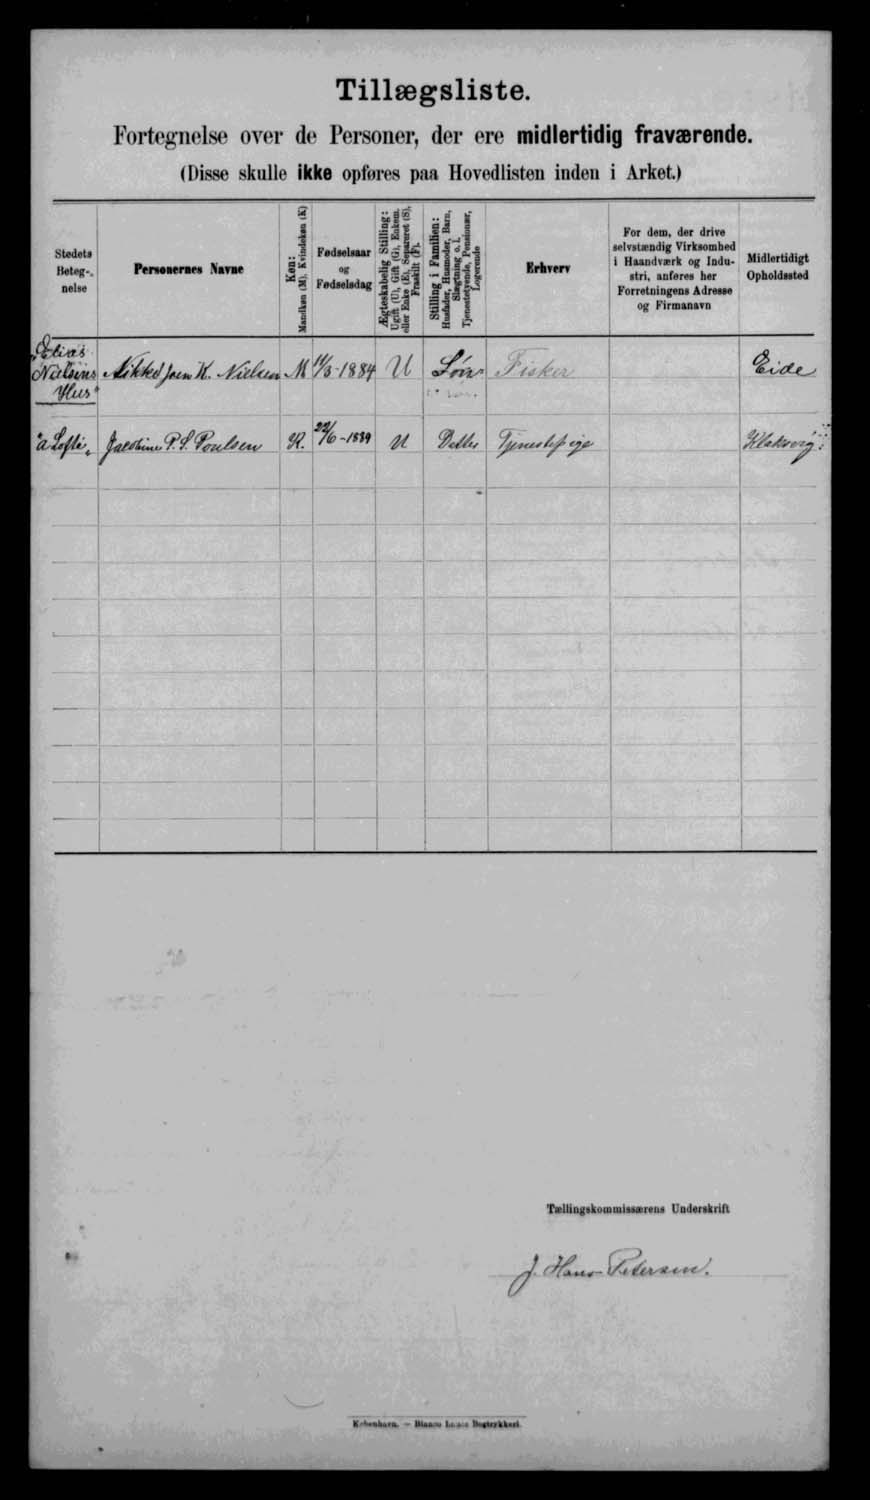 Tillægsliste.
Fortegnelse over de Personer, der ere midlertidig fraværende.
(Disse skulle ikke opføres paa Hovedlisten inden i Arket.)
Stedets Betegnelse
Personernes Navne
Køn: Mandkøn (M), Kvindekøn (K)
Fødselsaar og Fødselsdag
Ægteskabelig Stilling: Ugift (U), Gift (G), Enkem. eller Enke (E), Separeret (S), Fraskilt (F).
Stilling i Familien: Husfader, Husmoder, Barn, Slægtning o. l. Tjenestetyende, Pensionær, Logerende
Erhverv
For dem, der drive selvstændig Virksomhed i Haandværk og Industri, anføres her Forretningens Adresse og Firmanavn
Midlertidigt Opholdssted
„Elias
Nielsens Joen K. Nielsen M 11/3-1884 U Fisker Eide
Hus"
"á Lofti„ P. S. Poulsen K. 22/6-1889 U Datter Tjenestepige Klaksvig
Tællingskommissærens Underskrift
J. Hans Petersen.
København. — Bianco Lunos Bogtrykkeri.